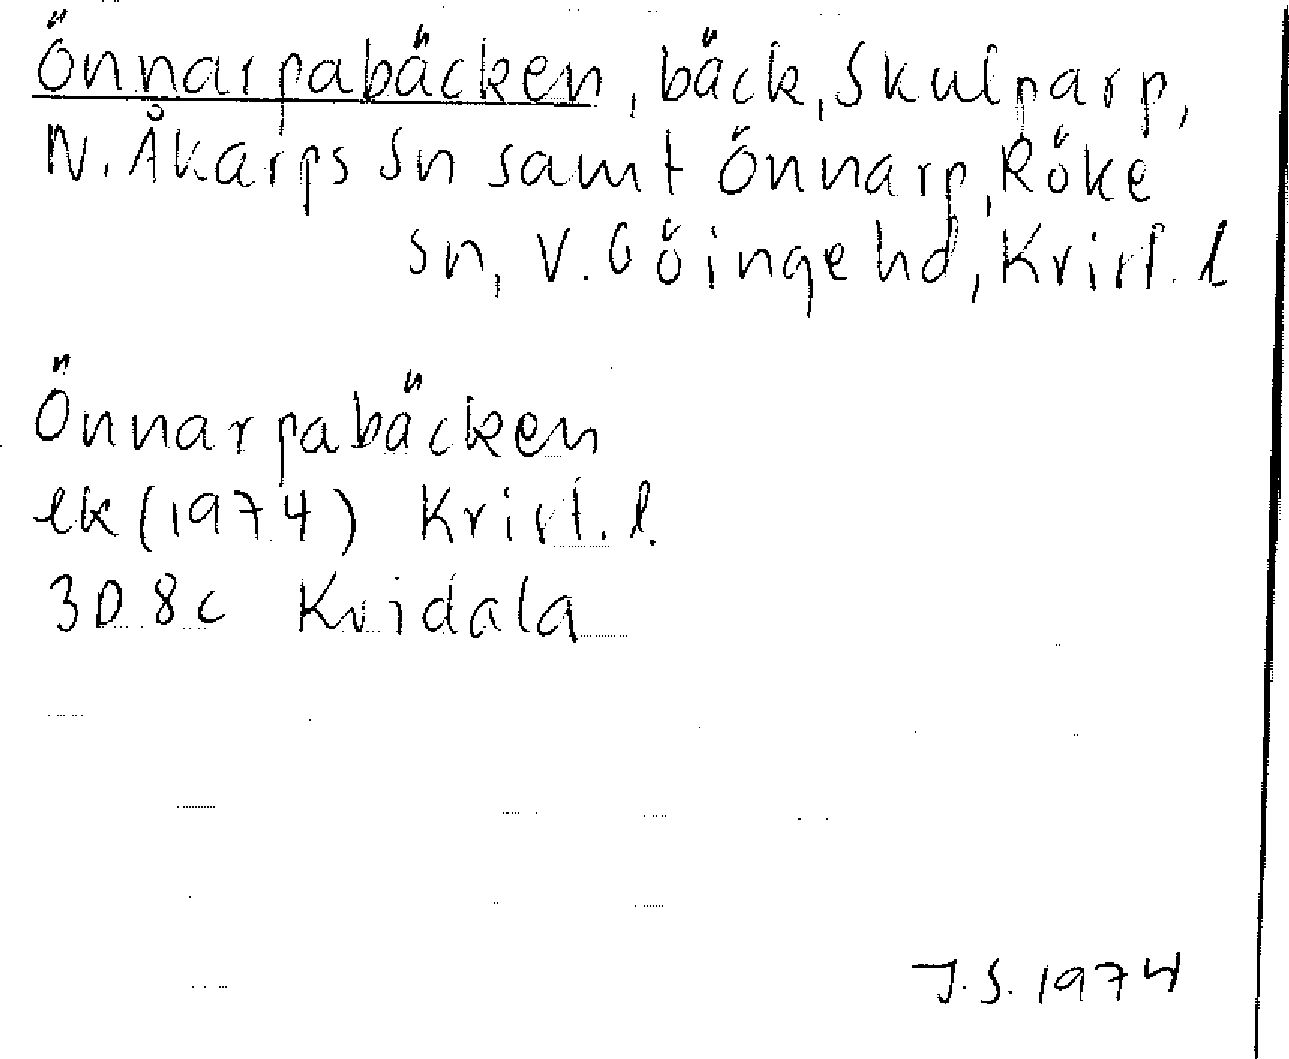 Önnarpabäcken, bäck, Skulparp,
N. Åkarps sn samt Önnarp, Röke
sn, V. Göinge hd, Krist. l
Önnarpabäcken
ek (1974) Krist. l.
3D 8c Kvidala
J.S. 1974